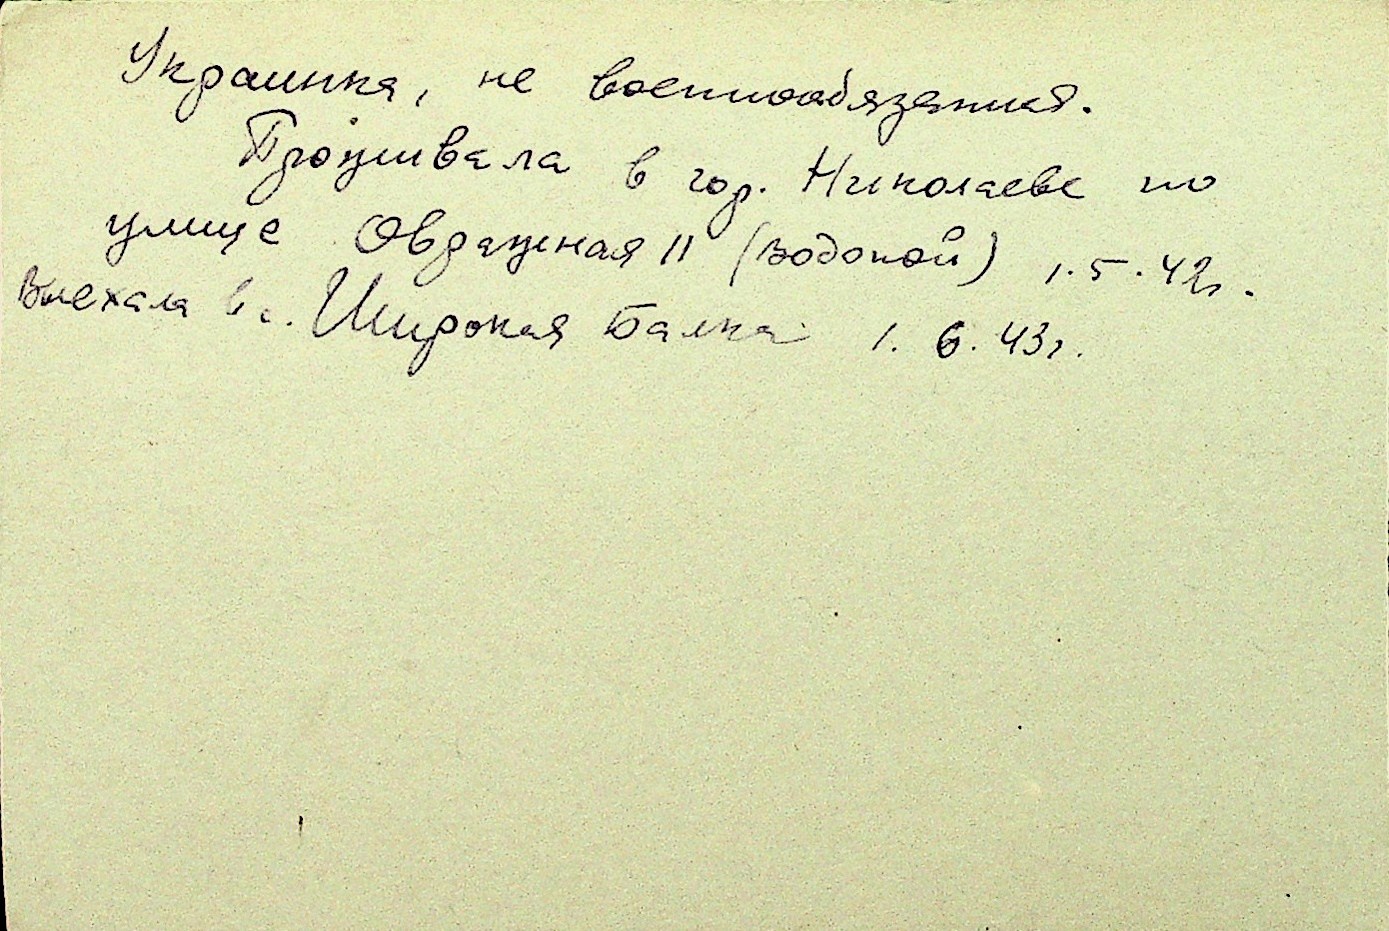 Украинка, не военнообязанная.
Проживала в гор. Николаеве по
улице Овражная 11 (Водопой) 1.5.42г.
Выехала в с. Широкая Балка 1.6.43г.